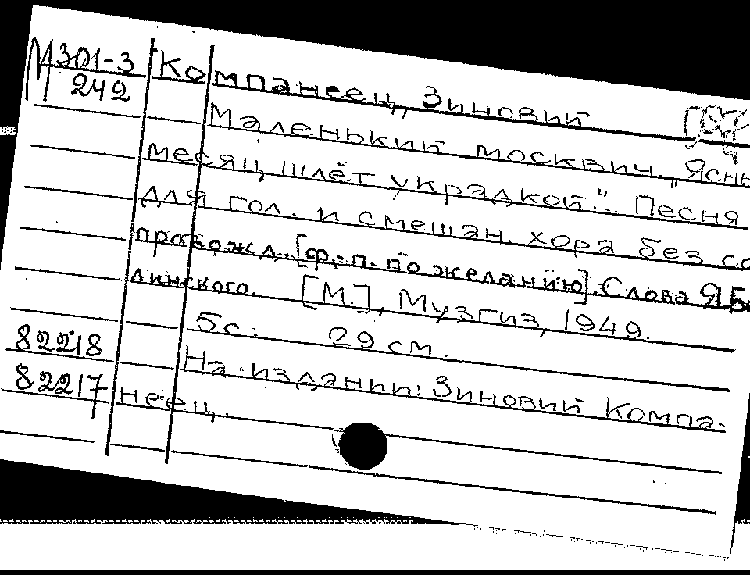 М301-3 Компанеец, Зиновий
242
Маленький москвич. „Ясны
месяц шлёт украдкой." Песня
для гол. и смешан. хора без со
провожд. [ф.-п. по желанию]. Слова Я Бе
линского. [М.], Музгиз, 1949.
5с. 29 см.
82218
На издании: Зиновий Компа-
82217 неец.